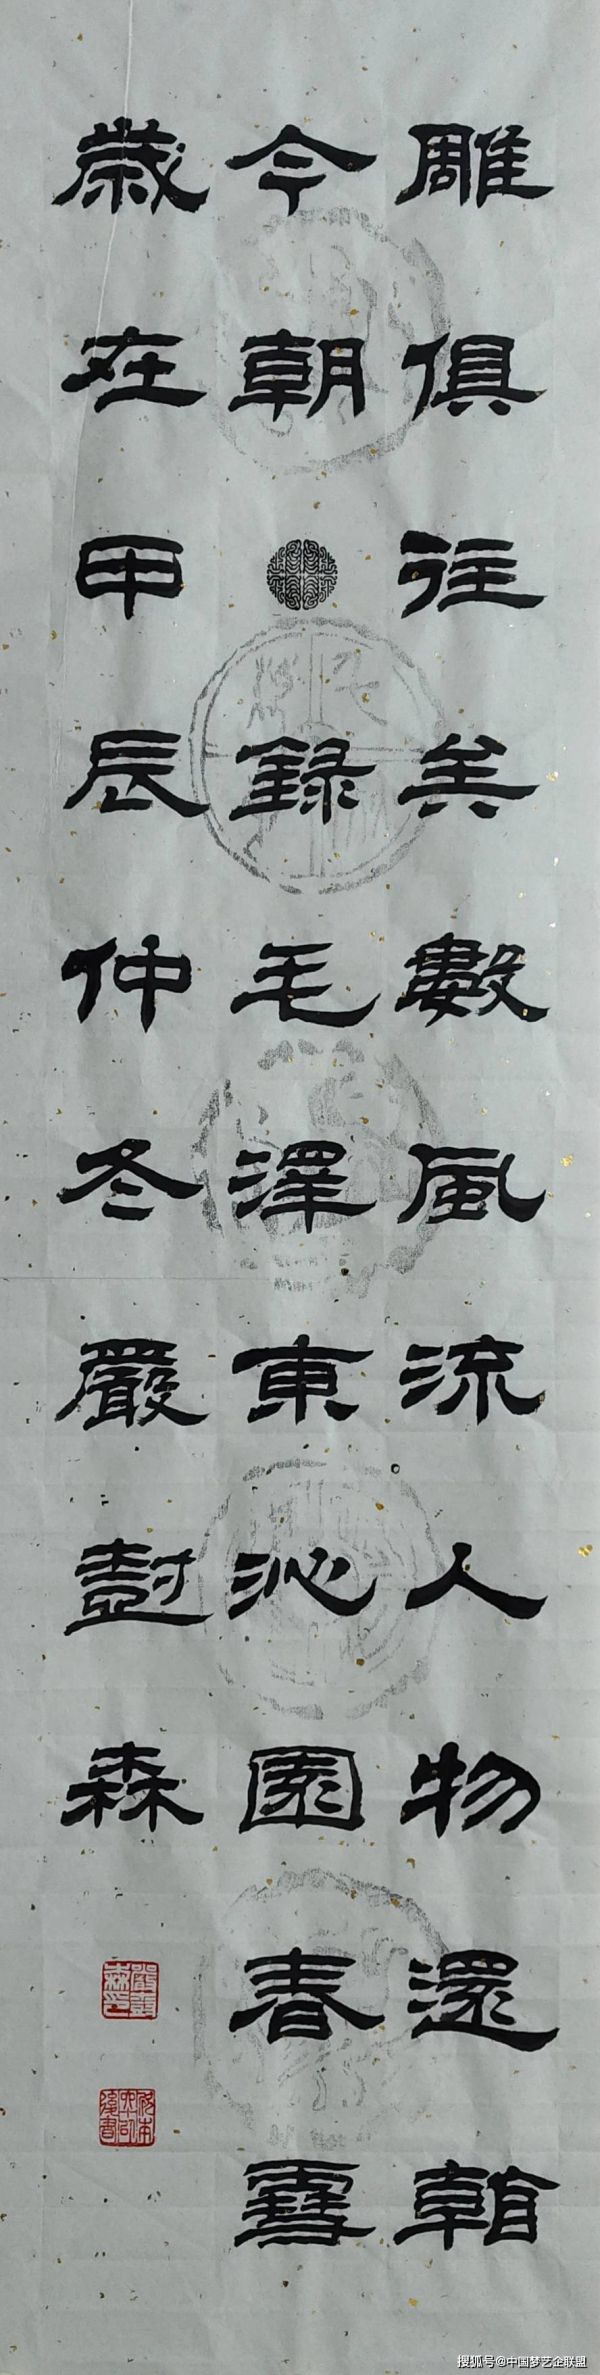 雕俱往矣數風流人物還看
今朝 錄毛澤東沁園春雪
歲在甲辰仲冬嚴尌森
搜狐号@中国梦艺企联盟